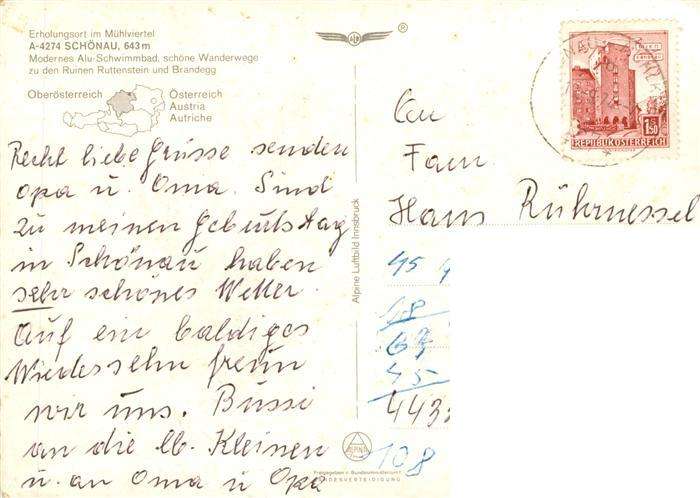 Erholungsort im Mühlviertel
A-4274 SCHÖNAU, 643 m
Modernes Alu-Schwimmbad, schöne Wanderwege
zu den Ruinen Ruttenstein und Brandegg
Oberösterreich
Österreich
Austria
Autriche
®
Recht liebe Grüsse senden
Opa u. Oma. Sind
zu meinen Geburtstag
in Schönau haben
sehr schönes Wetter.
Auf ein baldiges
Wiedersehn freun
wir uns. Bussi
an die lb. Kleinen
u. an Oma u Opa
Alpine Luftbild Innsbruck
1.50
REPUBLIK ÖSTERREICH
An
Fam
Hans Rührnessel
45
48
67
45
443
108
ALPINE
Freigegeben v. Bundesministerium f.
LANDESVERTEIDIGUNG